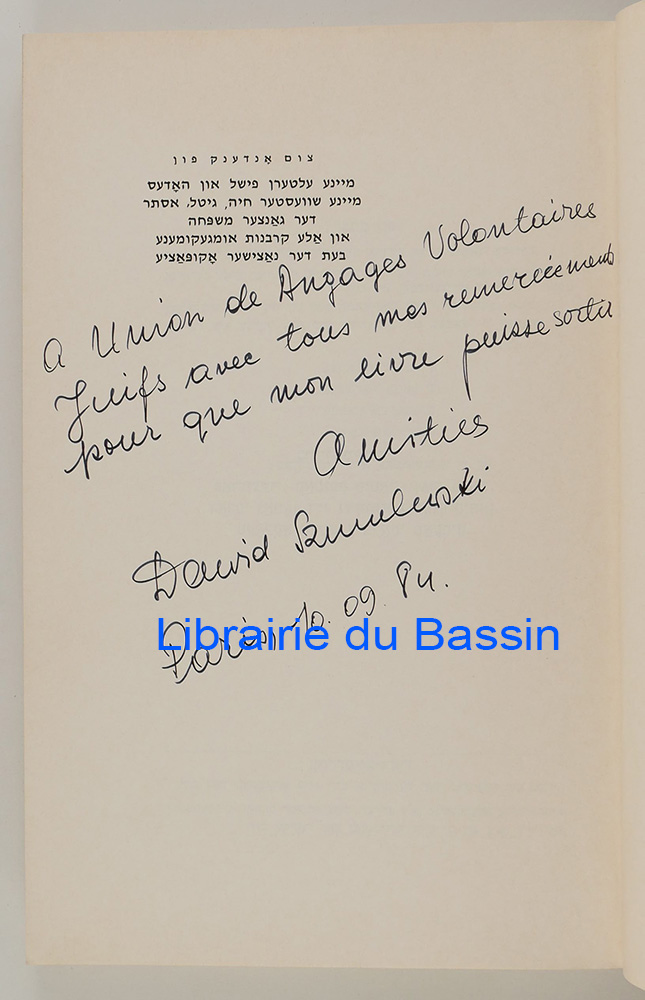 צום אָנדענק פון
מיינע עלטערן פישל און האָדעס
מיינע שוועסטער חיה, גיטל, אסתר
דער גאַנצער משפּחה
און אַלע קרבנות אומגעקומענע
בעת דער נאַצישער אָקופּאַציע
A Union de Angages Volontaires
Juifs avec tous mes remerciements
pour que mon livre puisse sortir
Amitiés
Dawid Szmulewski
Paris, 10.09.84.
Librairie du Bassin